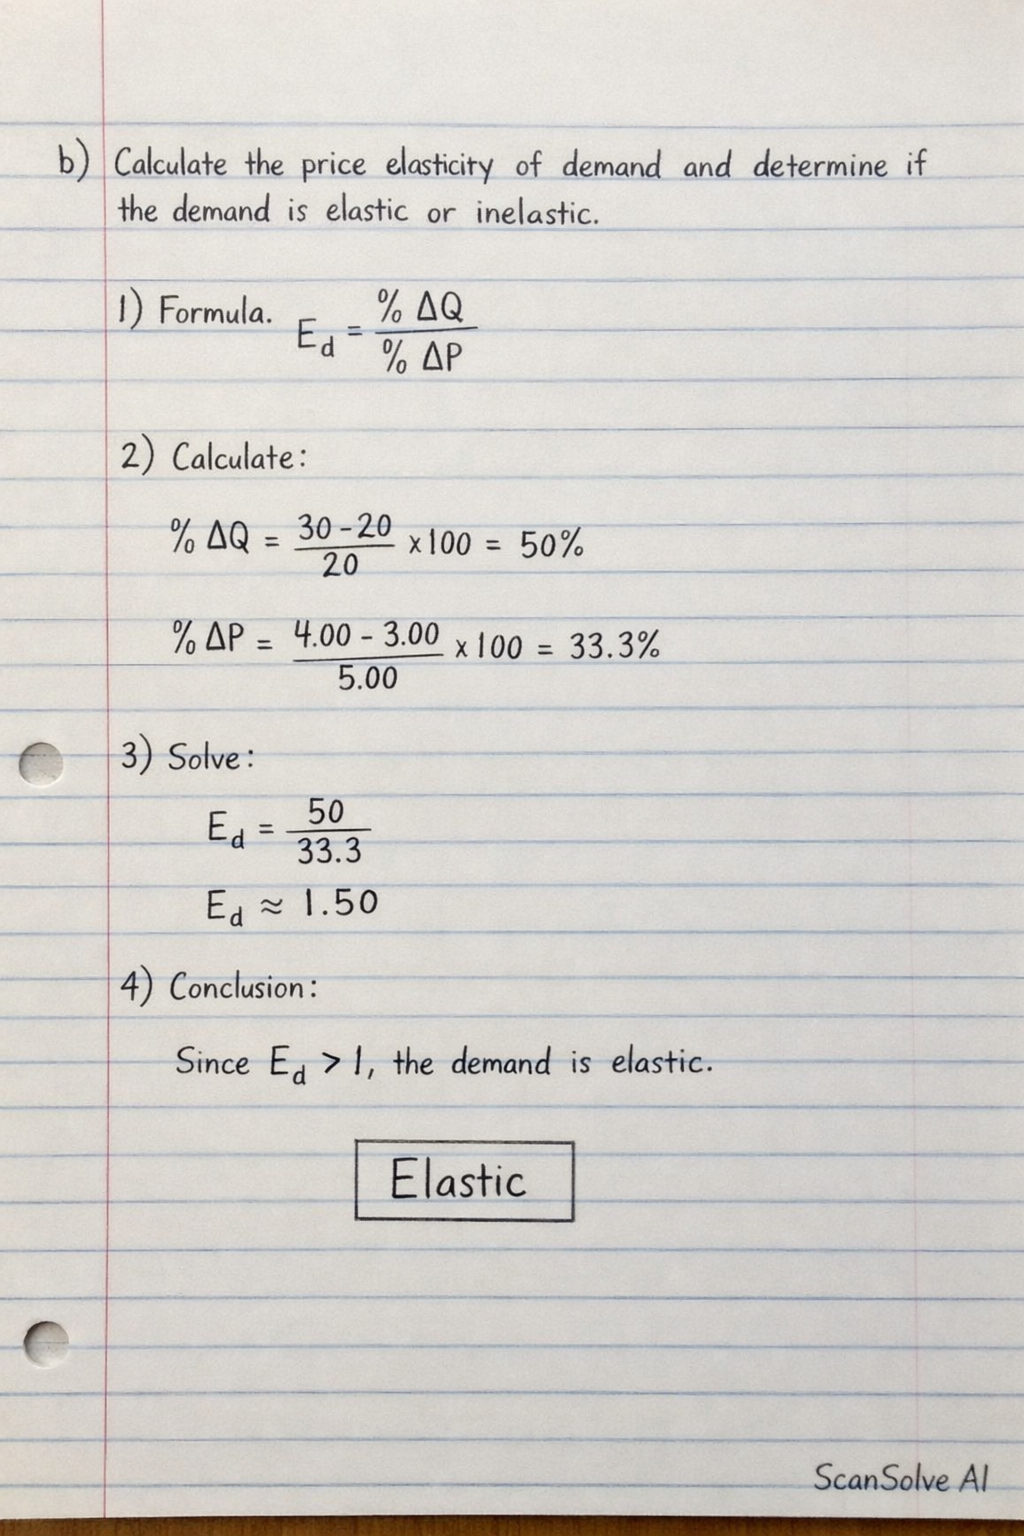 b) Calculate the price elasticity of demand and determine if
the demand is elastic or inelastic.
1) Formula. E_d = % ΔQ / % ΔP
2) Calculate:
% ΔQ = 30 - 20 / 20 x 100 = 50%
% ΔP = 4.00 - 3.00 / 5.00 x 100 = 33.3%
3) Solve:
E_d = 50 / 33.3
E_d ≈ 1.50
4) Conclusion:
Since E_d > 1, the demand is elastic.
Elastic
ScanSolve AI